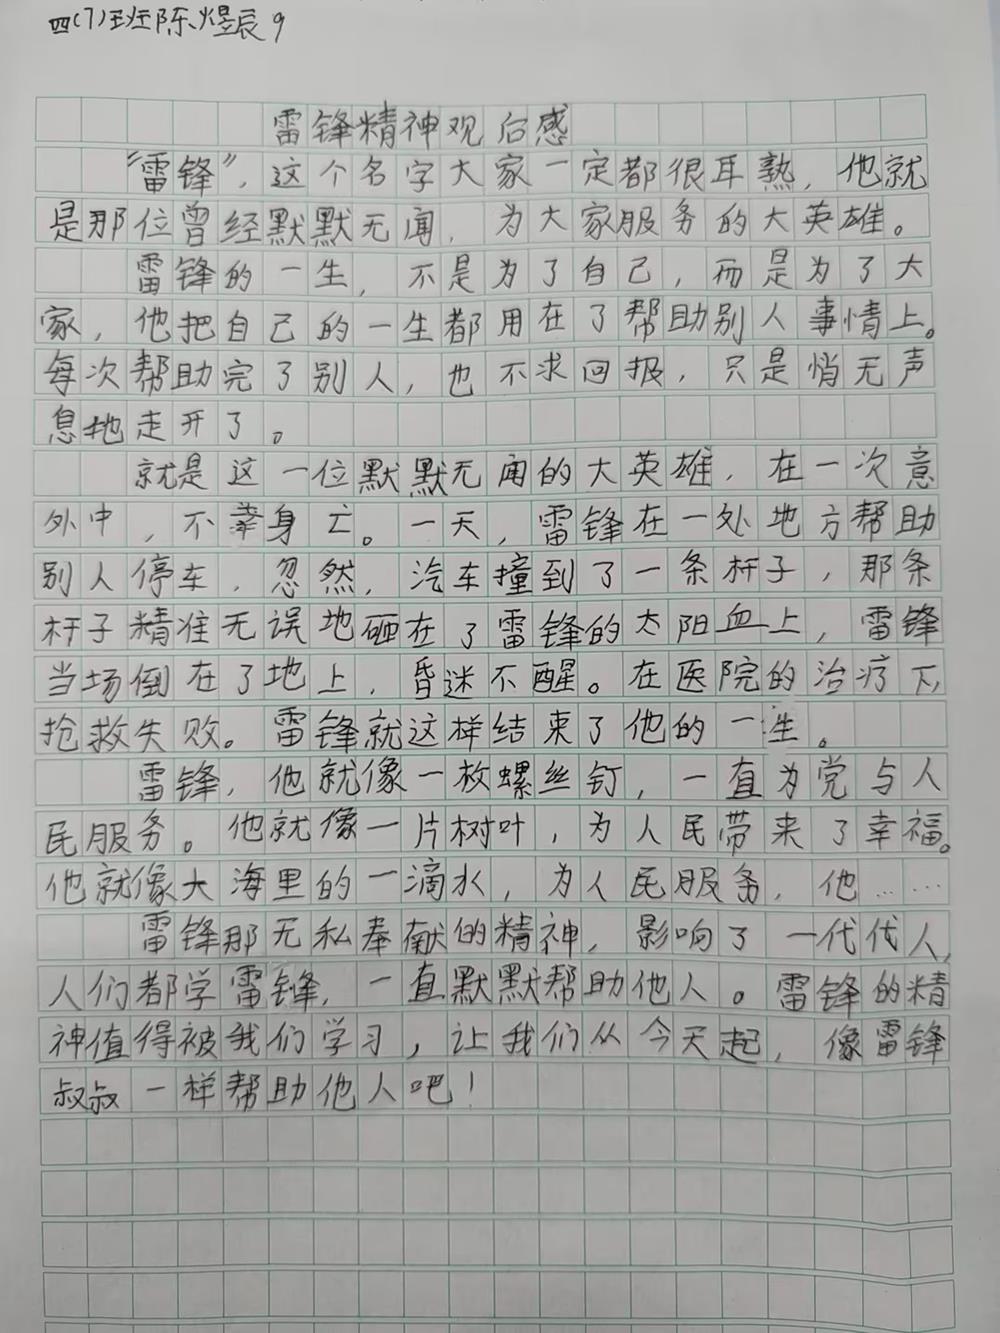 四(7)班陈煜辰9
雷锋精神观后感
“雷锋”，这个名字大家一定都很耳熟，他就
是那位曾经默默无闻，为大家服务的大英雄。
雷锋的一生，不是为了自己，而是为了大
家，他把自己的一生都用在了帮助别人事情上。
每次帮助完了别人，也不求回报，只是悄无声
息地走开了。
就是这一位默默无闻的大英雄，在一次意
外中，不幸身亡。一天，雷锋在一处地方帮助
别人停车，忽然，汽车撞到了一条杆子，那条
杆子精准无误地砸在了雷锋的太阳血上，雷锋
当场倒在了地上，昏迷不醒。在医院的治疗下，
抢救失败。雷锋就这样结束了他的一生。
雷锋，他就像一枚螺丝钉，一直为党与人
民服务。他就像一片树叶，为人民带来了幸福。
他就像大海里的一滴水，为人民服务，他……
雷锋那无私奉献的精神，影响了一代代人，
人们都学雷锋，一直默默帮助他人。雷锋的精
神值得被我们学习，让我们从今天起，像雷锋
叔叔一样帮助他人吧！